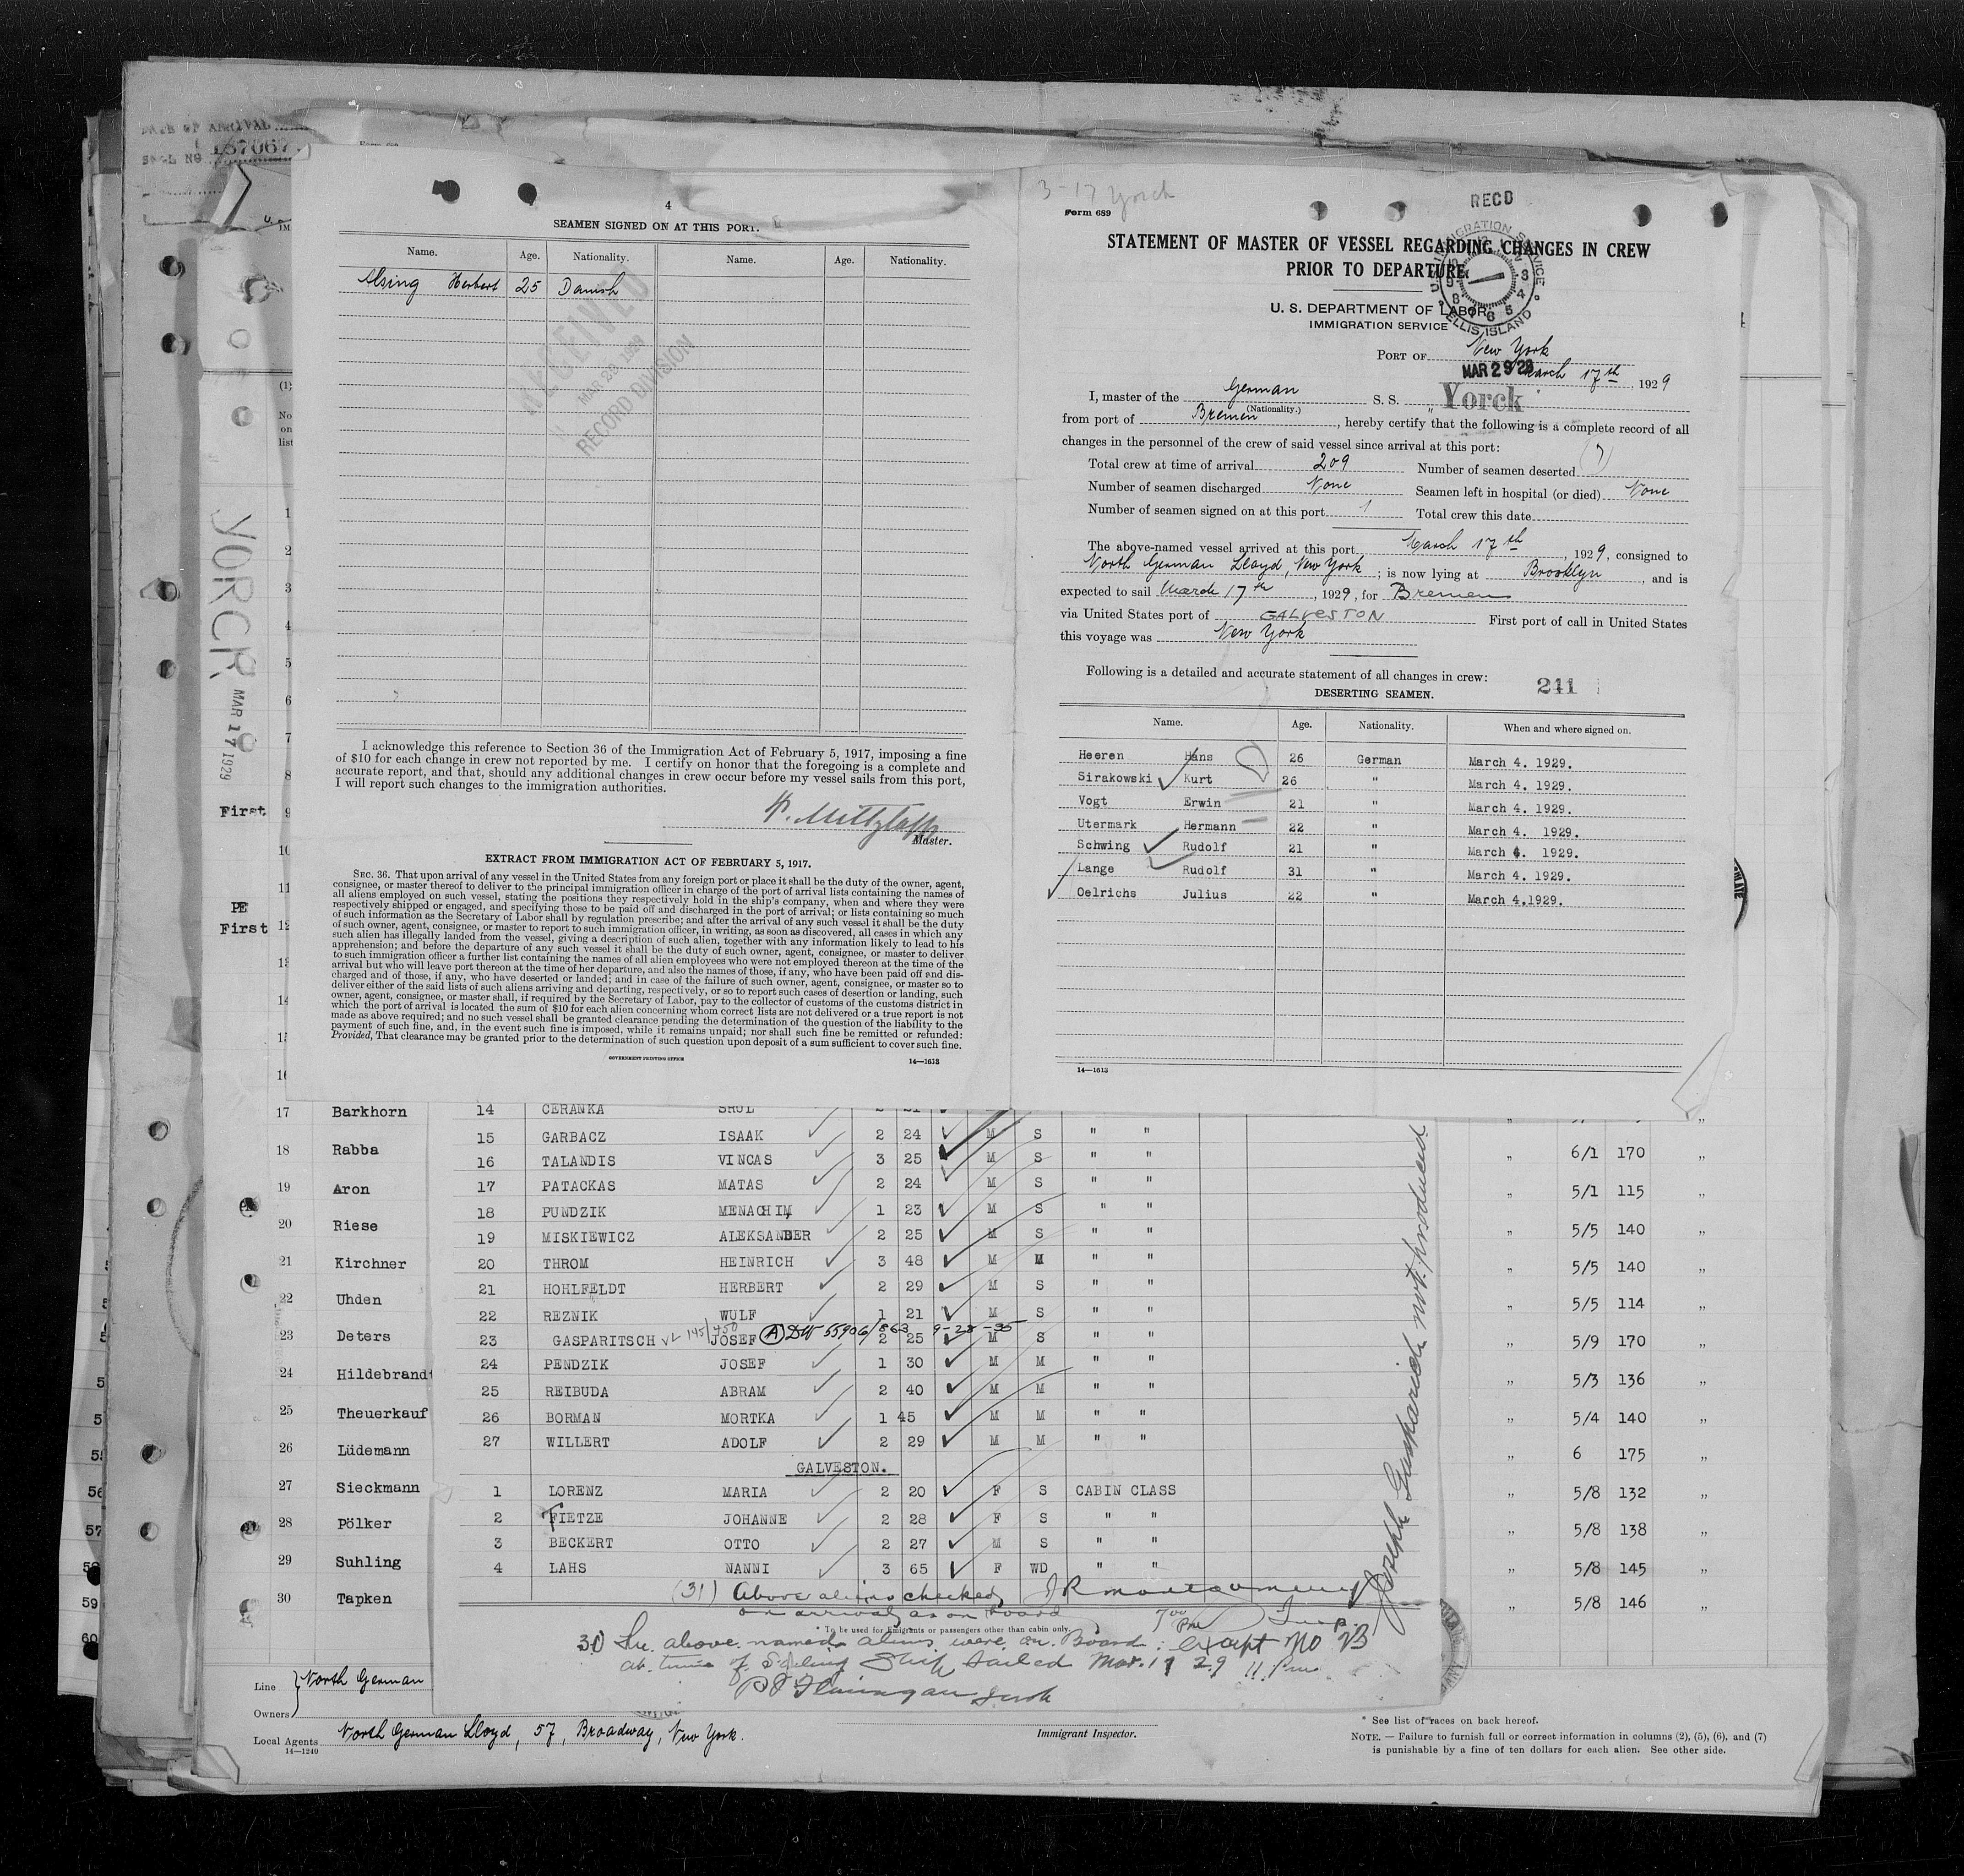 DATE OF ARRIVAL
137067
3-17 Yorck
RECD
Form 689
4
SEAMEN SIGNED ON AT THIS PORT.
Name. Age. Nationality. Name. Age. Nationality.
Alsing Herbert 25 Danish
RECEIVED
MAR 1929
RECORD DIVISION
I acknowledge this reference to Section 36 of the Immigration Act of February 5, 1917, imposing a fine
of $10 for each change in crew not reported by me. I certify on honor that the foregoing is a complete and
accurate report, and that, should any additional changes in crew occur before my vessel sails from this port,
I will report such changes to the immigration authorities.
Master.
EXTRACT FROM IMMIGRATION ACT OF FEBRUARY 5, 1917.
SEC. 36. That upon arrival of any vessel in the United States from any foreign port or place it shall be the duty of the owner, agent,
consignee, or master thereof to deliver to the principal immigration officer in charge of the port of arrival lists containing the names of
all aliens employed on such vessel, stating the positions they respectively hold in the ship's company, when and where they were
respectively shipped or engaged, and specifying those to be paid off and discharged in the port of arrival; or lists containing so much
of such information as the Secretary of Labor shall by regulation prescribe; and after the arrival of any such vessel it shall be the duty
of such owner, agent, consignee, or master to report to such immigration officer, in writing, as soon as discovered, all cases in which any
such alien has illegally landed from the vessel, giving a description of such alien, together with any information likely to lead to his
apprehension; and before the departure of any such vessel it shall be the duty of such owner, agent, consignee, or master to deliver
to such immigration officer a further list containing the names of all alien employees who were not employed thereon at the time of the
arrival but who will leave port thereon at the time of her departure, and also the names of those, if any, who have been paid off and dis-
charged and of those, if any, who have deserted or landed; and in case of the failure of such owner, agent, consignee, or master so to
deliver either of the said lists of such aliens arriving and departing, respectively, or so to report such cases of desertion or landing, such
owner, agent, consignee, or master shall, if required by the Secretary of Labor, pay to the collector of customs of the customs district in
which the port of arrival is located the sum of $10 for each alien concerning whom correct lists are not delivered or a true report is not
made as above required; and no such vessel shall be granted clearance pending the determination of the question of the liability to the
payment of such fine, and, in the event such fine is imposed, while it remains unpaid; nor shall such fine be remitted or refunded:
Provided, That clearance may be granted prior to the determination of such question upon deposit of a sum sufficient to cover such fine.
GOVERNMENT PRINTING OFFICE 14—1613
STATEMENT OF MASTER OF VESSEL REGARDING CHANGES IN CREW
PRIOR TO DEPARTURE.
U. S. DEPARTMENT OF LABOR
IMMIGRATION SERVICE
U.S. IMMIGRATION SERVICE
ELLIS ISLAND
PORT OF New York
MAR 29 29
March 17th, 1929
I, master of the German S. S. "Yorck"
(Nationality.)
from port of Bremen, hereby certify that the following is a complete record of all
changes in the personnel of the crew of said vessel since arrival at this port:
Total crew at time of arrival 209 Number of seamen deserted (7)
Number of seamen discharged None Seamen left in hospital (or died) None
Number of seamen signed on at this port 1 Total crew this date
The above-named vessel arrived at this port March 17th, 1929, consigned to
North German Lloyd, New York; is now lying at Brooklyn, and is
expected to sail March 17th, 1929, for Bremen
via United States port of GALVESTON First port of call in United States
this voyage was New York
Following is a detailed and accurate statement of all changes in crew:
241
DESERTING SEAMEN.
Name. Age. Nationality. When and where signed on.
Heeren Hans 26 German March 4. 1929.
Sirakowski Kurt 26 " March 4. 1929.
Vogt Erwin 21 " March 4. 1929.
Utermark Hermann 22 " March 4. 1929.
Schwing Rudolf 21 " March 4. 1929.
Lange Rudolf 31 " March 4. 1929.
Oelrichs Julius 22 " March 4.1929.
14—1613
YORCK
MAR 17 1929
First
PE
First
1
2
3
4
5
6
7
8
9
10
11
12
13
14
15
16
17 Barkhorn
18 Rabba
19 Aron
20 Riese
21 Kirchner
22 Uhden
23 Deters
24 Hildebrandt
25 Theuerkauf
26 Lüdemann
27 Sieckmann
28 Pölker
29 Suhling
30 Tapken
14 CERANKA SRUL 2 21
15 GARBACZ ISAAK 2 24 M S " "
16 TALANDIS VINCAS 3 25 M S " "
17 PATACKAS MATAS 2 24 M S " "
18 PUNDZIK MENACHIM 1 23 M S " "
19 MISKIEWICZ ALEKSANDER 2 25 M S " "
20 THROM HEINRICH 3 48 M M " "
21 HOHLFELDT HERBERT 2 29 M S " "
22 REZNIK WULF 1 21 M S " "
23 GASPARITSCH VL 145/450 JOSEF (A) DW 55906/863 9-28-35 2 25 M S " "
24 PENDZIK JOSEF 1 30 M M " "
25 REIBUDA ABRAM 2 40 M M " "
26 BORMAN MORTKA 1 45 M M " "
27 WILLERT ADOLF 2 29 M M " "
GALVESTON.
1 LORENZ MARIA 2 20 F S CABIN CLASS
2 TIETZE JOHANNE 2 28 F S " "
3 BECKERT OTTO 2 27 M S " "
4 LAHS NANNI 3 65 F WD " "
(31) Above aliens checked J R Montgomery
on arrival as on board 7 00 Pm Insp.
* To be used for Emigrants or passengers other than cabin only
30 The above named aliens were on Board: except No 23
at time of Sailing Ship sailed Mar. 17 29 11 Pm
Joseph Gasparich not produced
" 6/1 170 "
" 5/1 115 "
" 5/5 140 "
" 5/5 140 "
" 5/5 114 "
" 5/9 170 "
" 5/3 136 "
" 5/4 140 "
" 6 175 "
" 5/8 132 "
" 5/8 138 "
" 5/8 145 "
" 5/8 146 "
56
57
58
59
60
Line North German
Owners
Local Agents North German Lloyd, 57, Broadway, New York.
14—1240
Immigrant Inspector.
* See list of races on back hereof.
NOTE. — Failure to furnish full or correct information in columns (2), (5), (6), and (7)
is punishable by a fine of ten dollars for each alien. See other side.